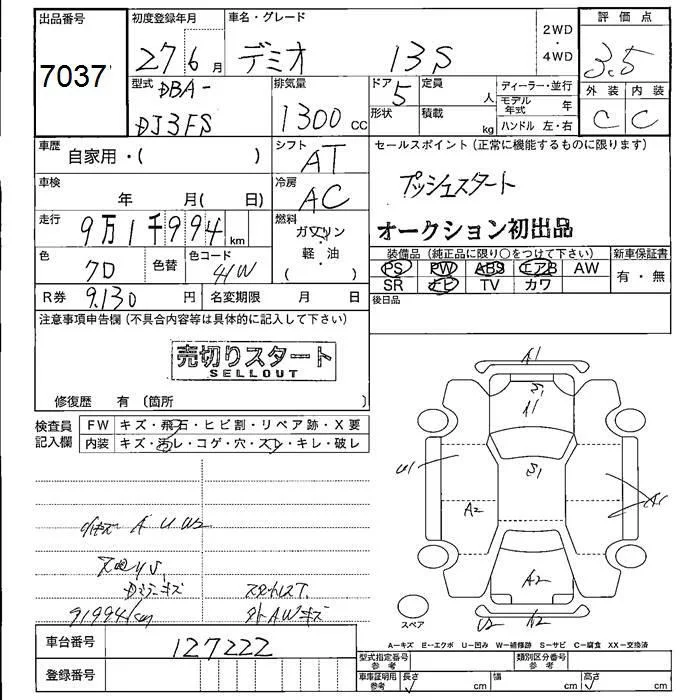 出品番号
7037
初度登録年月
27 6 月
車名・グレード
デミオ 13S
2WD
・
4WD
評価点
3.5
外装 内装
C C
型式
DBA-
DJ3FS
排気量
1300 cc
ドア
5
形状
定員
人
積載
kg
ディーラー・並行
モデル年式 年
ハンドル 左・右
車歴
自家用・( )
シフト
AT
セールスポイント (正常に機能するものに限ります)
プッシュスタート
オークション初出品
車検
年 月( 日)
冷房
AC
走行
9万1千994 km
燃料
ガソリン
・
軽・油
( )
色
色替
色コード
41W
装備品 (純正品に限り○をつけて下さい)
新車保証書
PS PW ABS エアB AW
SR ナビ TV カワ
有・無
R券 9,130 円
名変期限 月 日
後日品
注意事項申告欄 (不具合内容等は具体的に記入して下さい)
売切りスタート
SELLOUT
修復歴 有 (箇所 )
検査員
記入欄
FW キズ・飛石・ヒビ割・リペア跡・X要
内装 キズ・汚レ・コゲ・穴・スレ・キレ・破レ
A U W2
キズ
91994km
外AWキズ
A1
S1
A1
U1
S1
A2
A1
A2
U2 A2
スペア
A-キズ E-エクボ U-凹み W-補修跡 S-サビ C-腐食 XX-交換済
車台番号
127222
登録番号
型式指定番号
参考
類別区分番号
参考
車庫証明用
参考
長さ cm
幅 cm
高さ cm